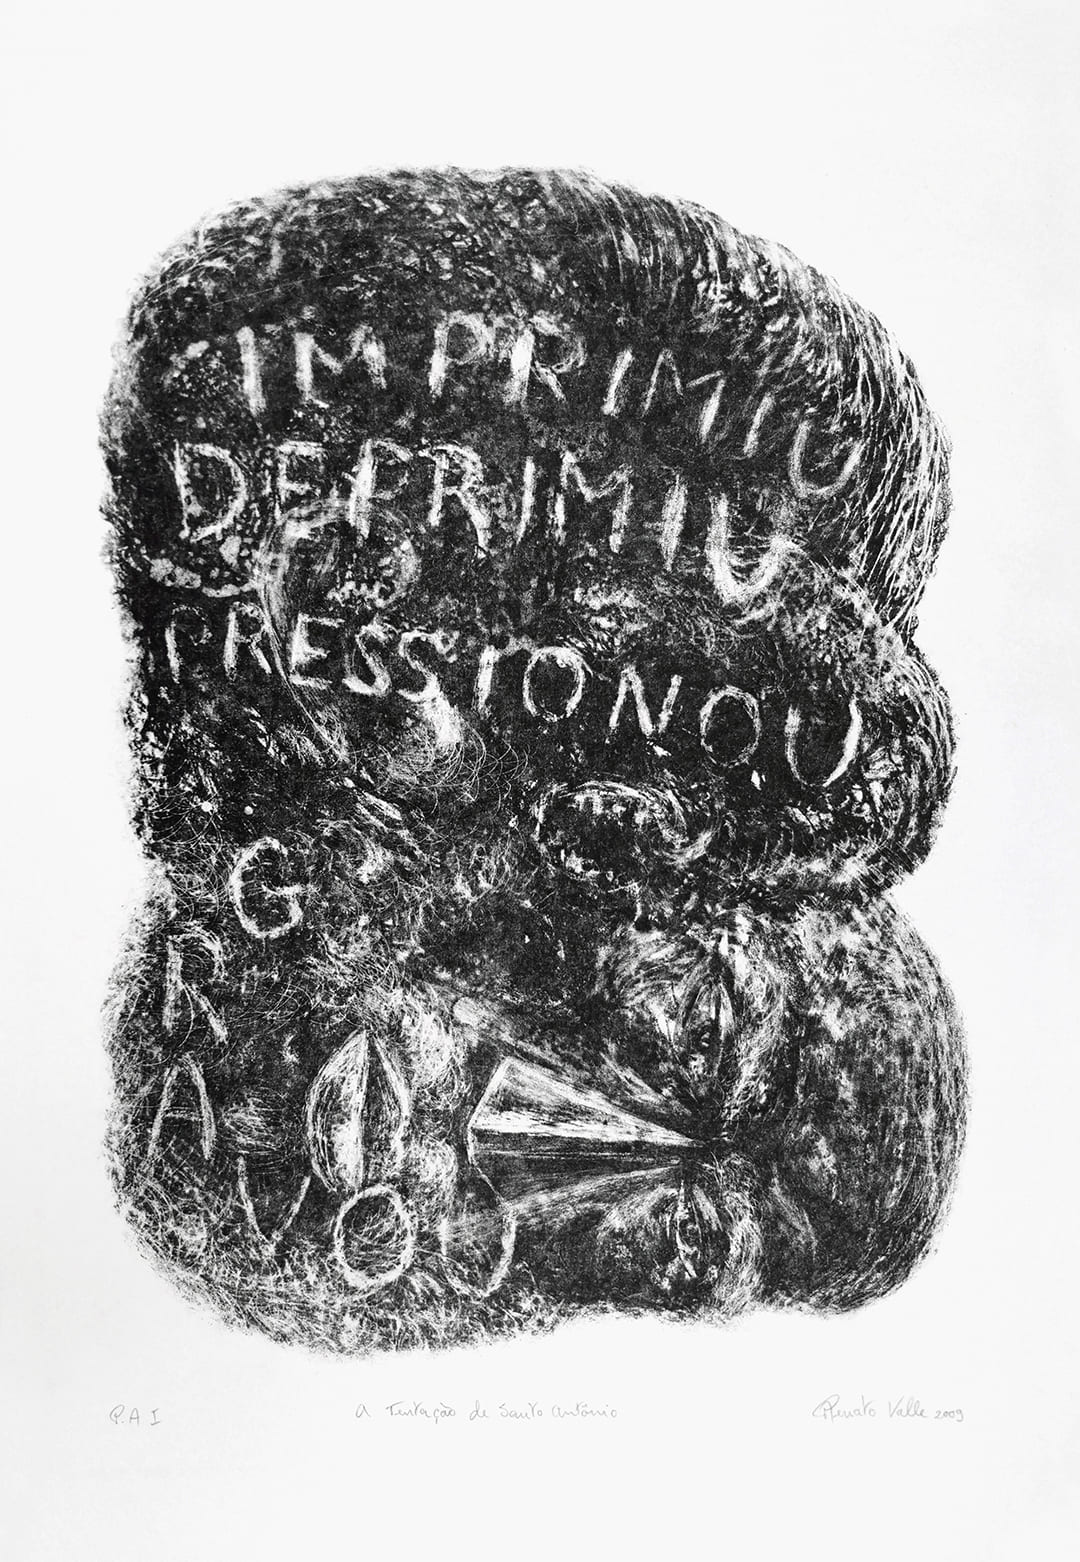 IMPRIMIU
DEPRIMIU
PRESSIONOU
G
R
A
VOU
P.A I
A Tentação de Santo Antônio
Renato Valle 2009